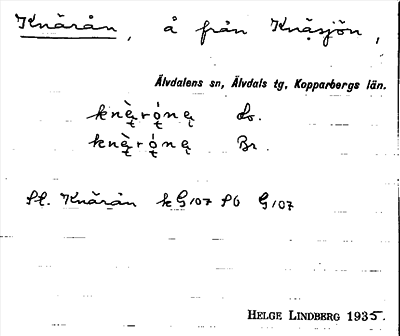 Knärån, å från Knäsjön,
Älvdalens sn, Älvdals tg, Kopparbergs län.
knę̀rǫ́nę Lo.
knę̀rǫ́nę Br.
Pl. Knärån k G107 Pb G107
HELGE LINDBERG 1935.